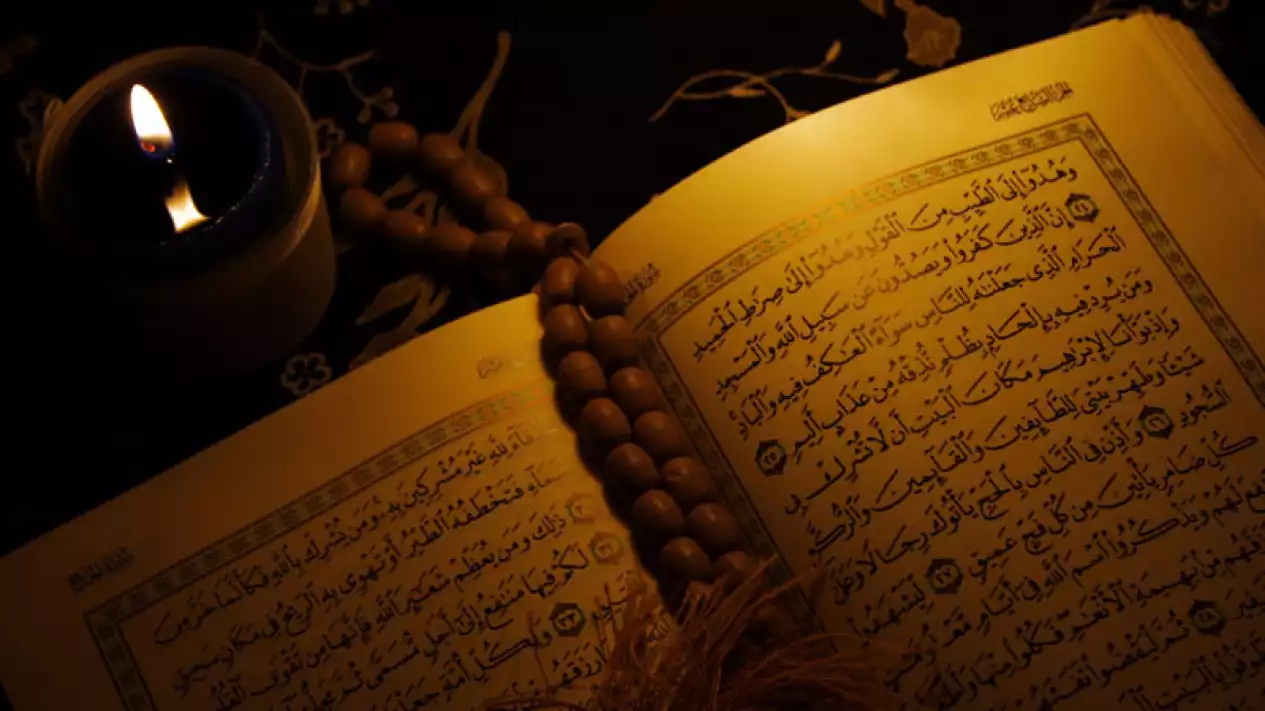 الجزء السابع عشر
وَهُدُوٓا۟ إِلَى ٱلطَّيِّبِ مِنَ ٱلْقَوْلِ وَهُدُوٓا۟ إِلَىٰ صِرَٰطِ ٱلْحَمِيدِ
٢٤ إِنَّ ٱلَّذِينَ كَفَرُوا۟ وَيَصُدُّونَ عَن سَبِيلِ ٱللَّهِ وَٱلْمَسْجِدِ
ٱلْحَرَامِ ٱلَّذِى جَعَلْنَٰهُ لِلنَّاسِ سَوَآءً ٱلْعَٰكِفُ فِيهِ وَٱلْبَادِ
وَمَن يُرِدْ فِيهِ بِإِلْحَادٍۭ بِظُلْمٍ نُّذِقْهُ مِنْ عَذَابٍ أَلِيمٍ ٢٥
وَإِذْ بَوَّأْنَا لِإِبْرَٰهِيمَ مَكَانَ ٱلْبَيْتِ أَن لَّا تُشْرِكْ بِى
شَيْـًٔا وَطَهِّرْ بَيْتِىَ لِلطَّآئِفِينَ وَٱلْقَآئِمِينَ وَٱلرُّكَّعِ
ٱلسُّجُودِ ٢٦ وَأَذِّن فِى ٱلنَّاسِ بِٱلْحَجِّ يَأْتُوكَ رِجَالًا وَعَلَىٰ
كُلِّ ضَامِرٍ يَأْتِينَ مِن كُلِّ فَجٍّ عَمِيقٍ ٢٧ لِّيَشْهَدُوا۟
لَهُمْ وَيَذْكُرُوا۟ ٱسْمَ ٱللَّهِ فِىٓ أَيَّامٍ
مِّنۢ بَهِيمَةِ ٱلْأَنْعَٰمِ فَكُلُوا۟ مِنْهَا
٢٨ ثُمَّ لْيَقْضُوا۟ تَفَثَهُمْ
غَيْرَ مُشْرِكِينَ بِهِۦ وَمَن يُشْرِكْ بِٱللَّهِ فَكَأَنَّمَا خَرَّ مِنَ
فَتَخْطَفُهُ ٱلطَّيْرُ أَوْ تَهْوِى بِهِ ٱلرِّيحُ فِى مَكَانٍ سَحِيقٍ
ذَٰلِكَ وَمَن يُعَظِّمْ شَعَٰٓئِرَ ٱللَّهِ فَإِنَّهَا مِن تَقْوَى
لَكُمْ فِيهَا مَنَٰفِعُ إِلَىٰٓ أَجَلٍ مُّسَمًّى ثُمَّ
٣٣ وَلِكُلِّ أُمَّةٍ جَعَلْنَا